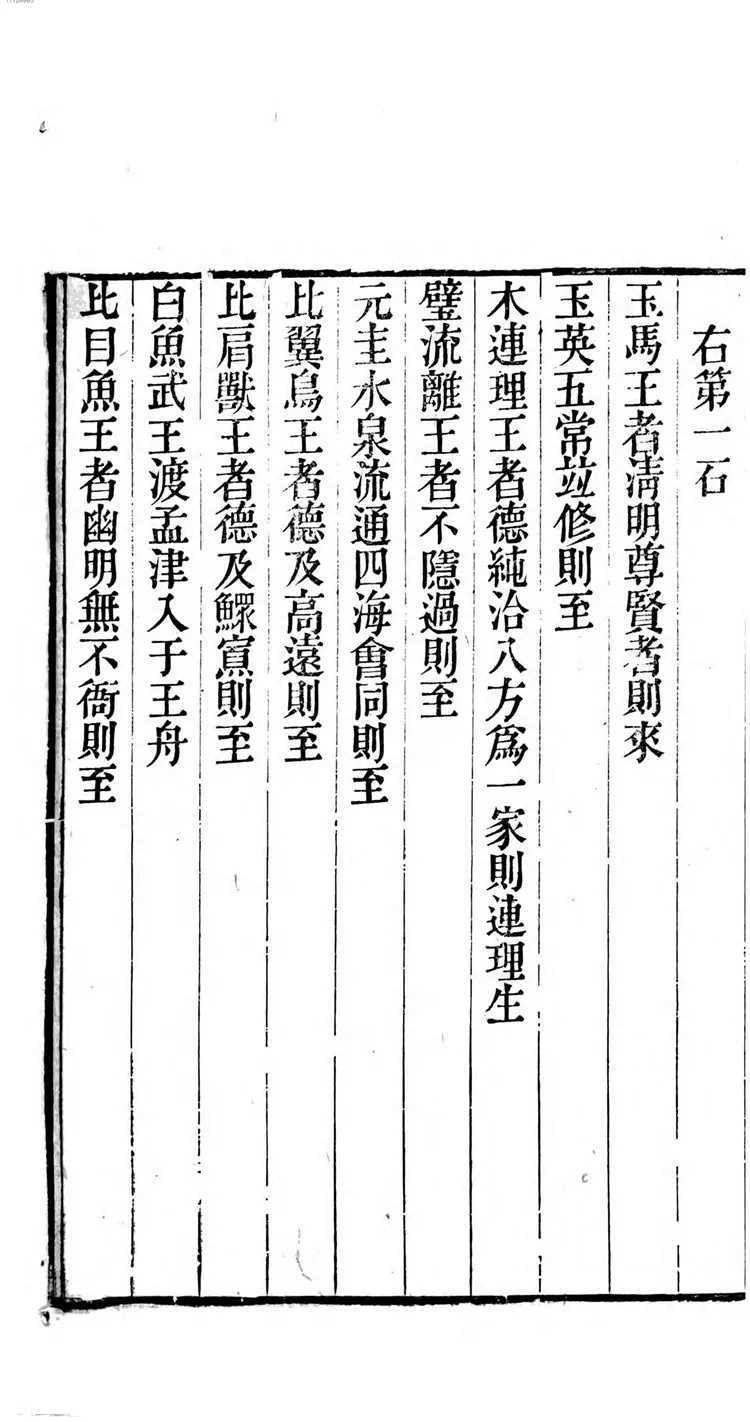 右第一石
玉馬王者清明尊賢者則來
玉英五常竝修則至
木連理王者德純洽八方爲一家則連理生
璧流離王者不隱過則至
元圭水泉流通四海會同則至
比翼鳥王者德及高遠則至
比肩獸王者德及鰥寡則至
白魚武王渡孟津入于王舟
比目魚王者幽明無不衙則至